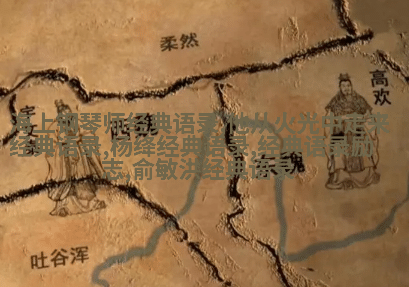 柔然
高欢
海上钢琴师经典语录,她从火光中走来
经典语录,杨绛经典语录,经典语录励
志,俞敏洪经典语录
西魏
东魏
吐谷浑